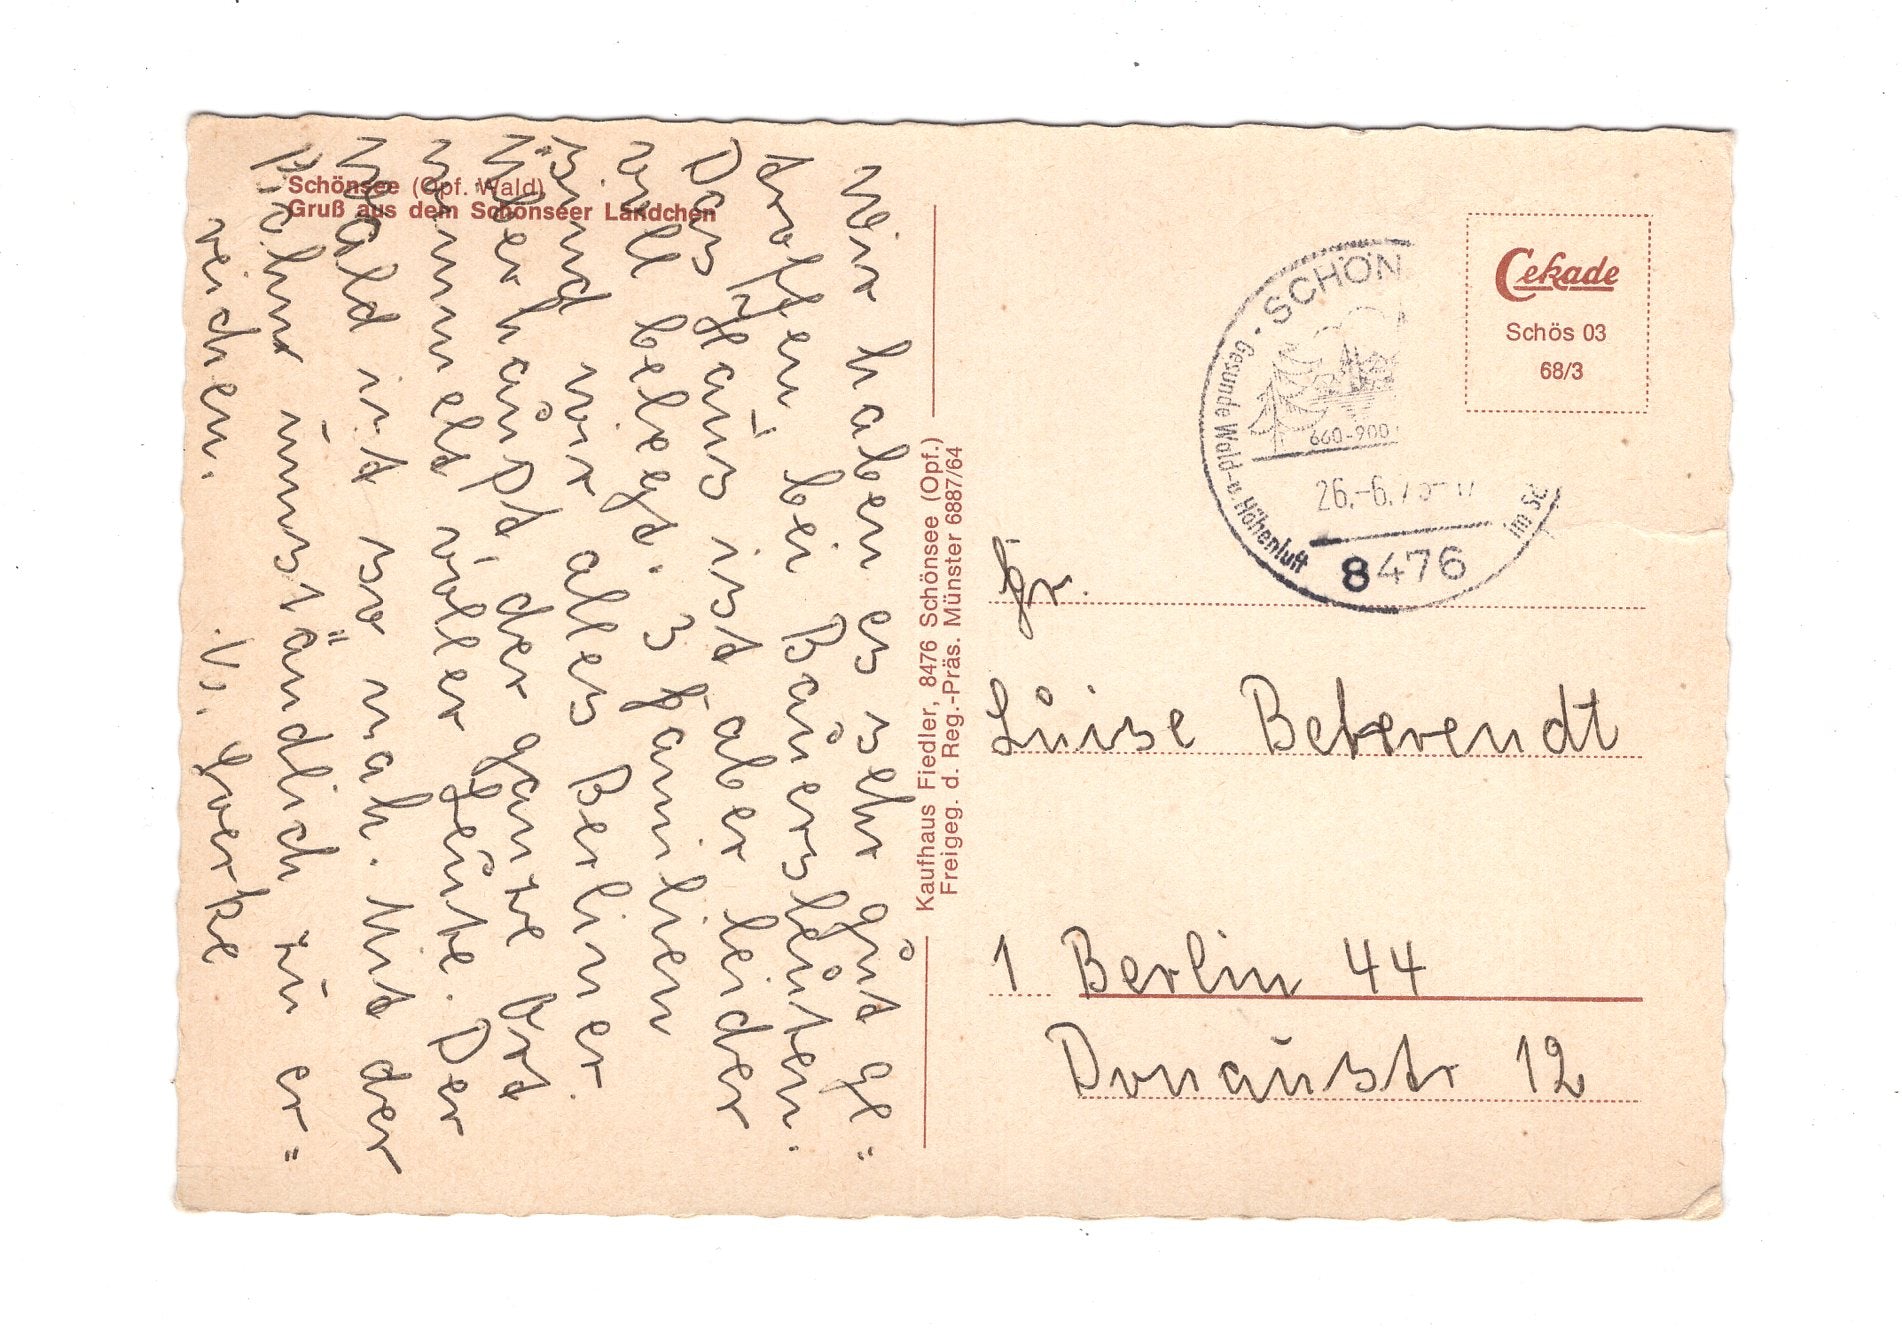 Schönsee (Opf. Wald)
Gruß aus dem Schönseer Ländchen
Wir haben es sehr gut ge=
troffen, bei Bauersleuten.
Das Haus ist aber leider
voll belegt. 3 Familien
sind wir alles Berliner.
Überhaupt, der ganze Ort
wimmelt voller Leute. Der
Wald ist so nah. Mit der
Bahn umständlich zu er=
reichen.
V. Goerke
Kaufhaus Fiedler, 8476 Schönsee (Opf.)
Freigeg. d. Reg.-Präs. Münster 6887/64
SCHÖN
Gesunde Wald- u. Höhenluft
660-900
26.-6.
8476
Cekade
Schös 03
68/3
Fr.
Luise Behrendt
1 Berlin 44
Donaustr 12